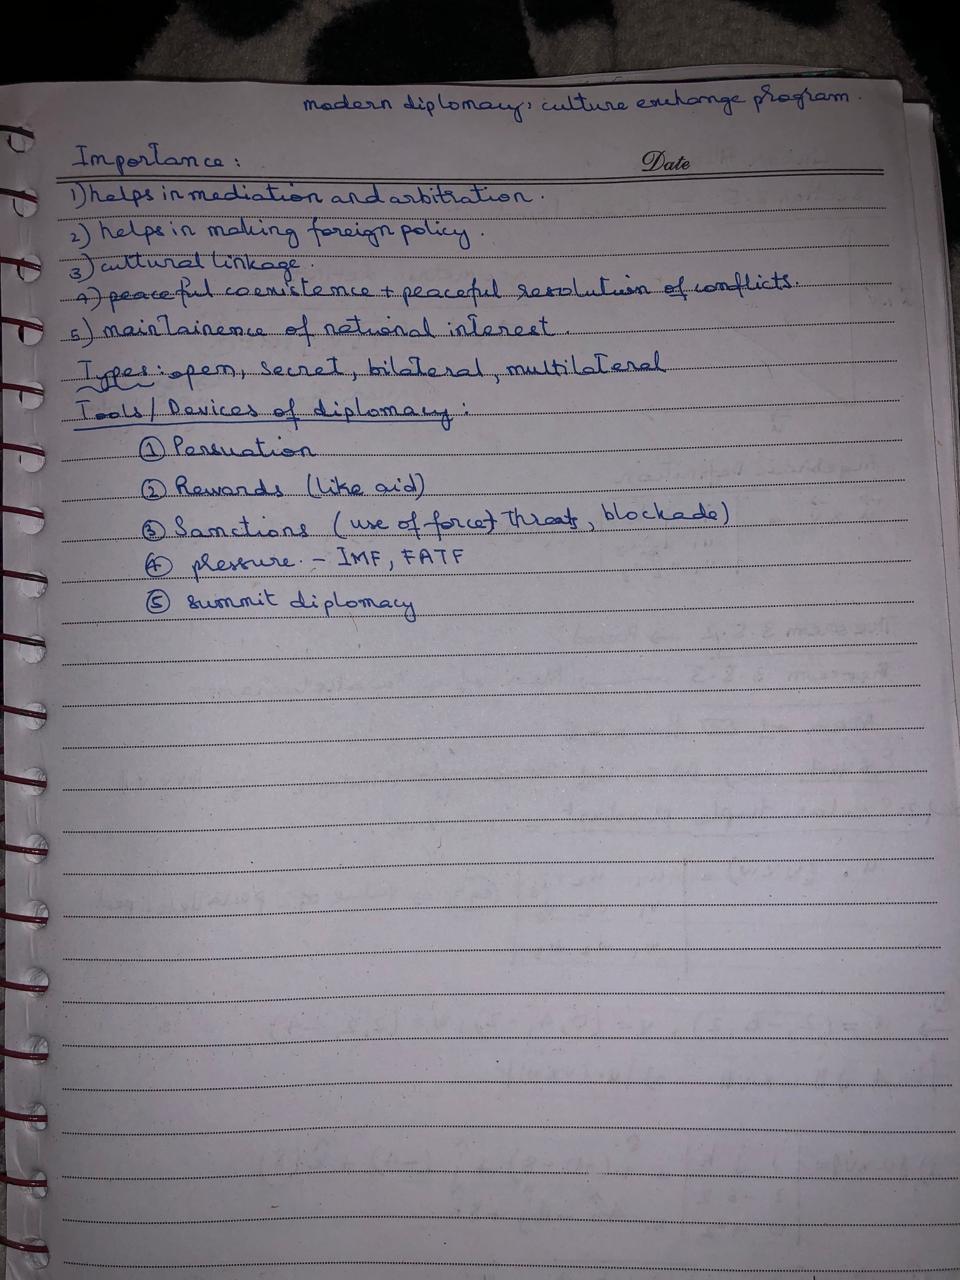 modern diplomacy, culture exchange program.
Importance:
Date
1) helps in mediation and arbitration.
2) helps in making foreign policy.
3) cultural linkage.
4) peaceful coexistence + peaceful resolution of conflicts.
5) maintainence of national interest.
Types: open, secret, bilateral, multilateral
Tools/Devices of diplomacy:
① Persuation
② Rewards (like aid)
③ Sanctions (use of force, threats, blockade)
④ pressure - IMF, FATF
⑤ summit diplomacy